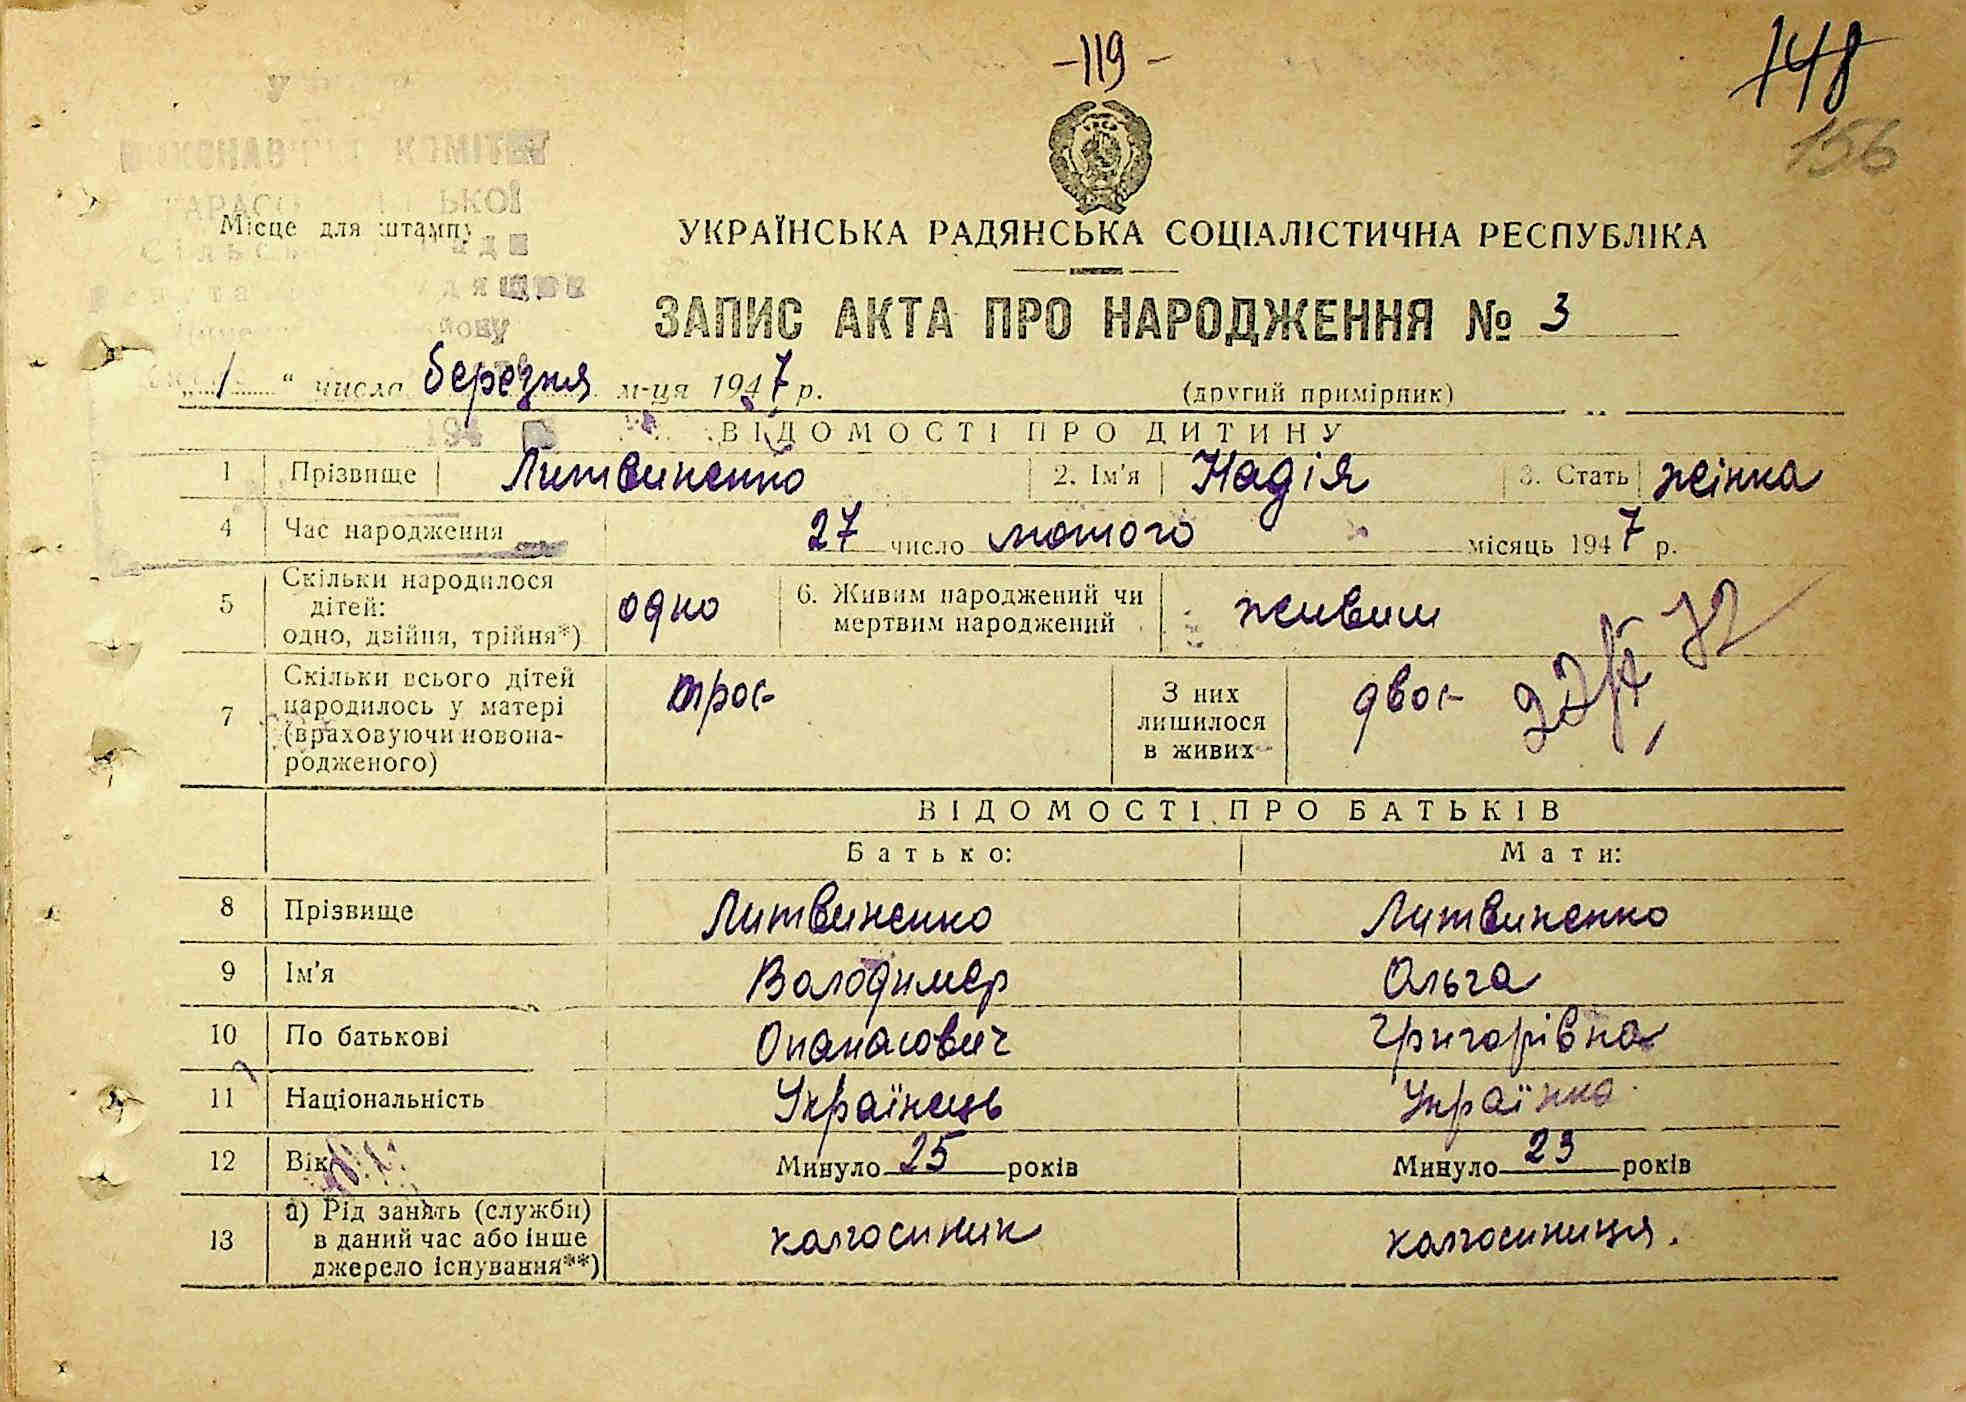 -119-
148
156
КОМІТЕТ
Місце для штампу
УКРАЇНСЬКА РАДЯНСЬКА СОЦІАЛІСТИЧНА РЕСПУБЛІКА
ЗАПИС АКТА ПРО НАРОДЖЕННЯ № 3
„1“ числа березня м-ця 1947 р. (другий примірник)
ВІДОМОСТІ ПРО ДИТИНУ
1 Прізвище Литвиненко 2. Ім'я Надія 3. Стать жінка
4 Час народження 27 число лютого місяць 1947 р.
5 Скільки народилося дітей: одно, двійня, трійня*) одно 6. Живим народжений чи мертвим народжений живим
7 Скільки всього дітей народилось у матері (враховуючи новонародженого) троє З них лишилося в живих двоє
ВІДОМОСТІ ПРО БАТЬКІВ
Батько: Мати:
8 Прізвище Литвиненко Литвиненко
9 Ім'я Володимер Ольга
10 По батькові Опанасович Григорівна
11 Національність Українець Українка
12 Вік Минуло 25 років Минуло 23 років
13 а) Рід занять (служби) в даний час або інше джерело існування**) колгоспник колгоспниця.